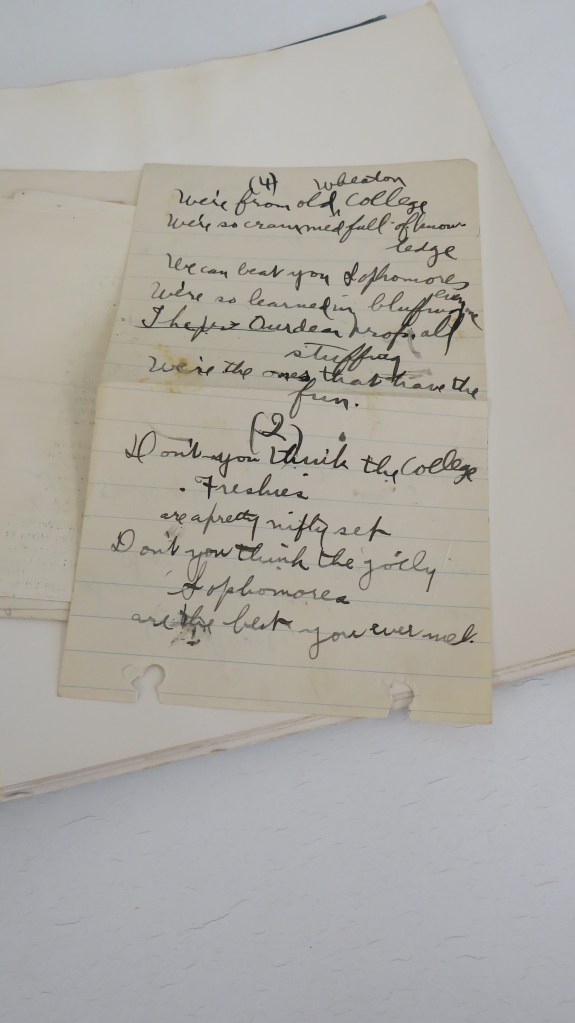 (4) Wheaton
We're from old, College
We're so crammed full of know
ledge
We can beat you Sophomores
We're so learned in bluffing
Our dear Profs. all
stuffing
We're the ones that have the
fun.
(2)
Don't you think the College
Freshies
are a pretty nifty set
Don't you think the jolly
Sophomores
are the best you ever met.